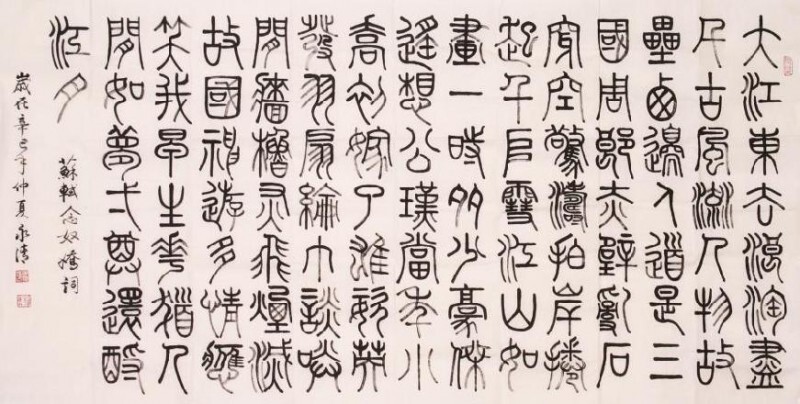 大江東去浪淘盡
千古風流人物故
壘西邊人道是三
國周郎赤壁亂石
穿空驚濤拍岸捲
起千堆雪江山如
畫一時多少豪傑
遙想公瑾當年小
喬初嫁了雄姿英
發羽扇綸巾談笑
間檣櫓灰飛煙滅
故國神遊多情應
笑我早生華髮人
間如夢一尊還酹
江月
蘇軾念奴嬌詞
歲在辛巳年仲夏